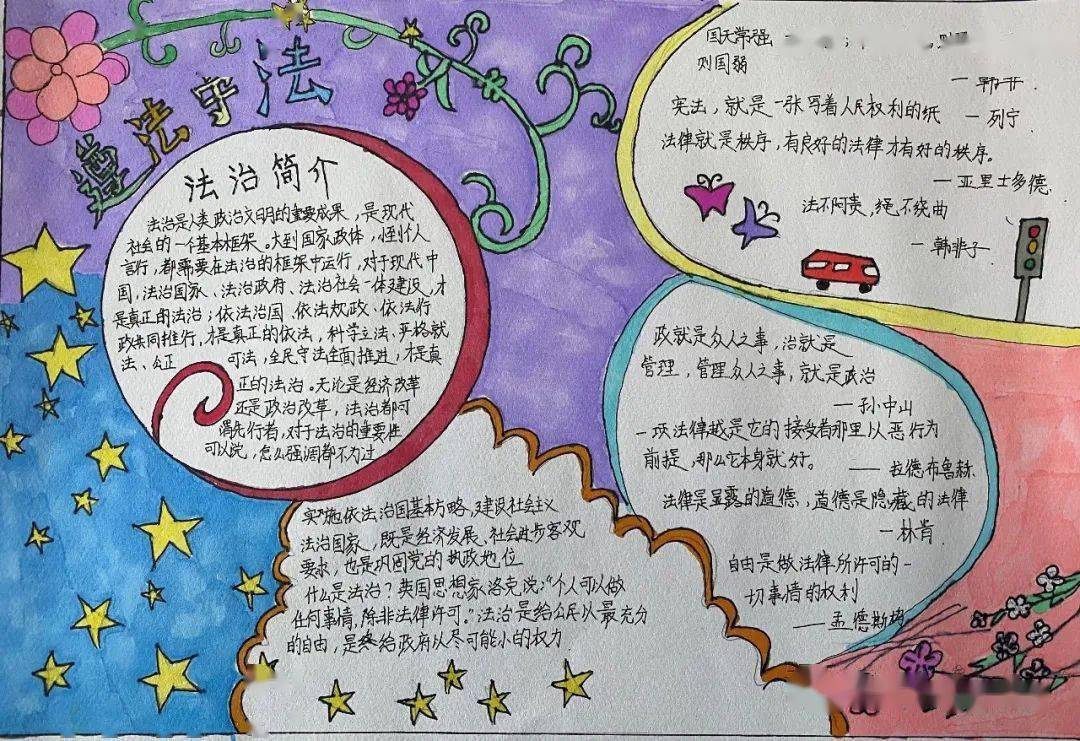 遵法守法
法治简介
法治是人类政治文明的重要成果，是现代
社会的一个基本框架。大到国家政体，小到个人
言行，都需要在法治的框架中运行，对于现代中
国，法治国家、法治政府、法治社会一体建设，才
是真正的法治；依法治国、依法执政、依法行
政共同推行，才是真正的依法，科学立法、严格执
法、公正 司法，全民守法全面推进，才是真
正的法治。无论是经济改革
还是政治改革，法治都可
谓先行者，对于法治的重要性
可以说，怎么强调都不为过
国无常强
则国弱
宪法，就是一张写着人民权利的纸 一列宁
法律就是秩序，有良好的法律才有好的秩序。
一亚里士多德
法不阿贵，绳不绕曲
一韩非子
政就是众人之事，治就是
管理，管理众人之事，就是政治
一孙中山
一项法律越是它的接受者那里以恶行为
前提，那么它本身就好。
——拉德布鲁赫
法律是显露的道德，道德是隐藏的法律
一林肯
自由是做法律所许可的一
切事情的权利
——孟德斯鸠
实施依法治国基本方略，建设社会主义
法治国家，既是经济发展、社会进步客观
要求，也是巩固党的执政地位
什么是法治？英国思想家洛克说：“个人可以做
任何事情，除非法律许可。”法治是给公民以最充分
的自由，是给政府以尽可能小的权力